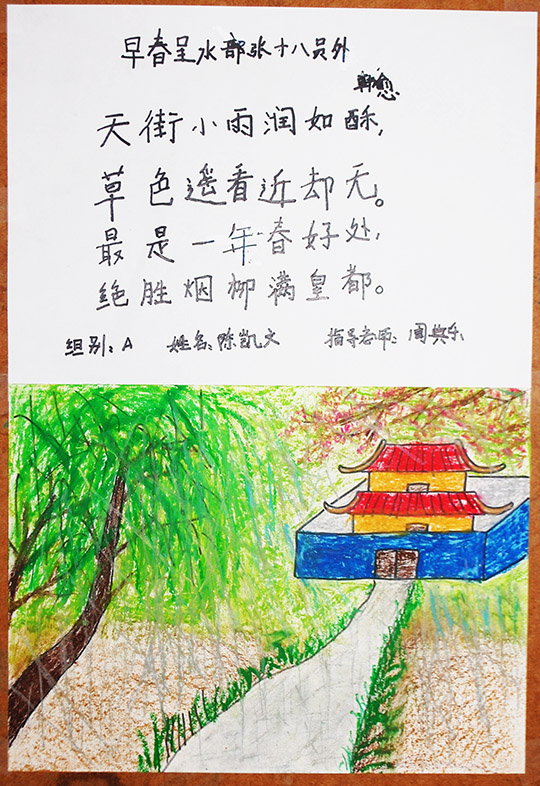 早春呈水部张十八员外
韩愈
天街小雨润如酥,
草色遥看近却无。
最是一年春好处,
绝胜烟柳满皇都。
组别：A 姓名：陈凯文 指导老师：周典乐